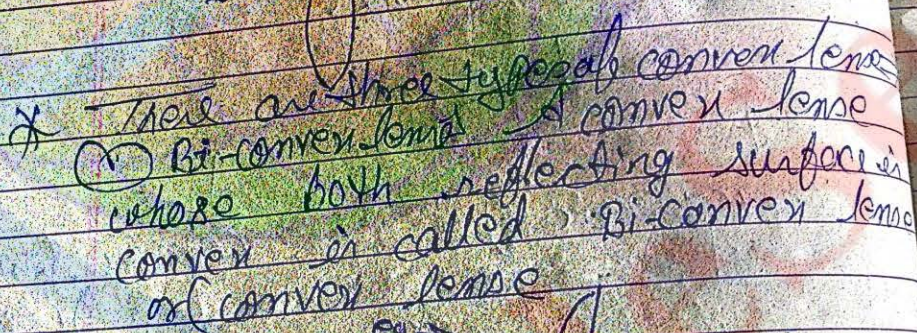 * There are three types of convex lense
(i) Bi-convex lense A convex lense
whose both reflecting surface is
convex is called Bi-convex lense
or convex lense
eg:-